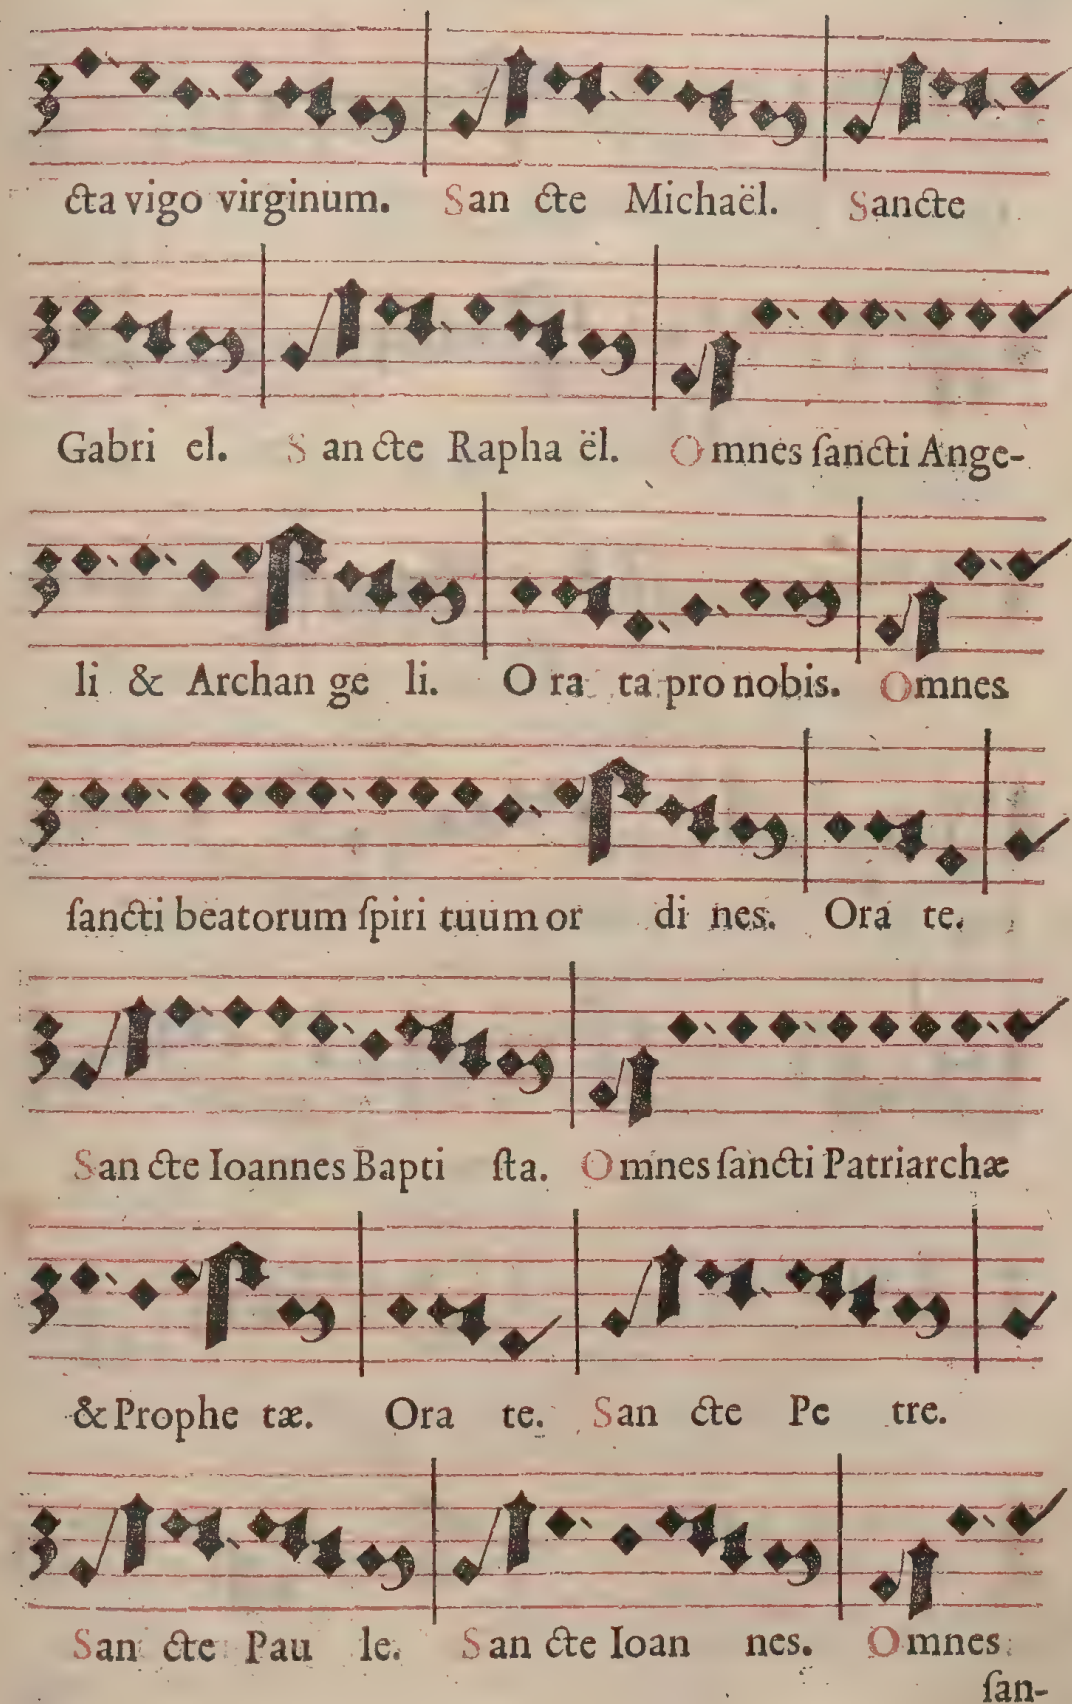 cta vigo virginum. San cte Michaël. Sancte
Gabri el. San cte Rapha ël. Omnes ſancti Ange-
li & Archan ge li. O ra ta pro nobis. Omnes
ſancti beatorum ſpiri tuum or di nes. Ora te.
San cte Ioannes Bapti ſta. Omnes ſancti Patriarchæ
& Prophe tæ. Ora te. San cte Pe tre.
San cte Pau le. San cte Ioan nes. Omnes
ſan-